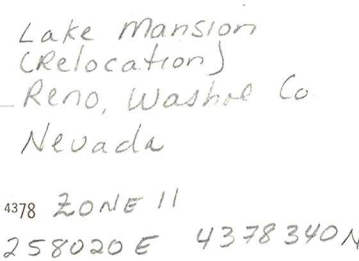 Lake Mansion
(Relocation)
Reno, Washoe Co
Nevada
4378 ZONE 11
258020 E 4378340 N